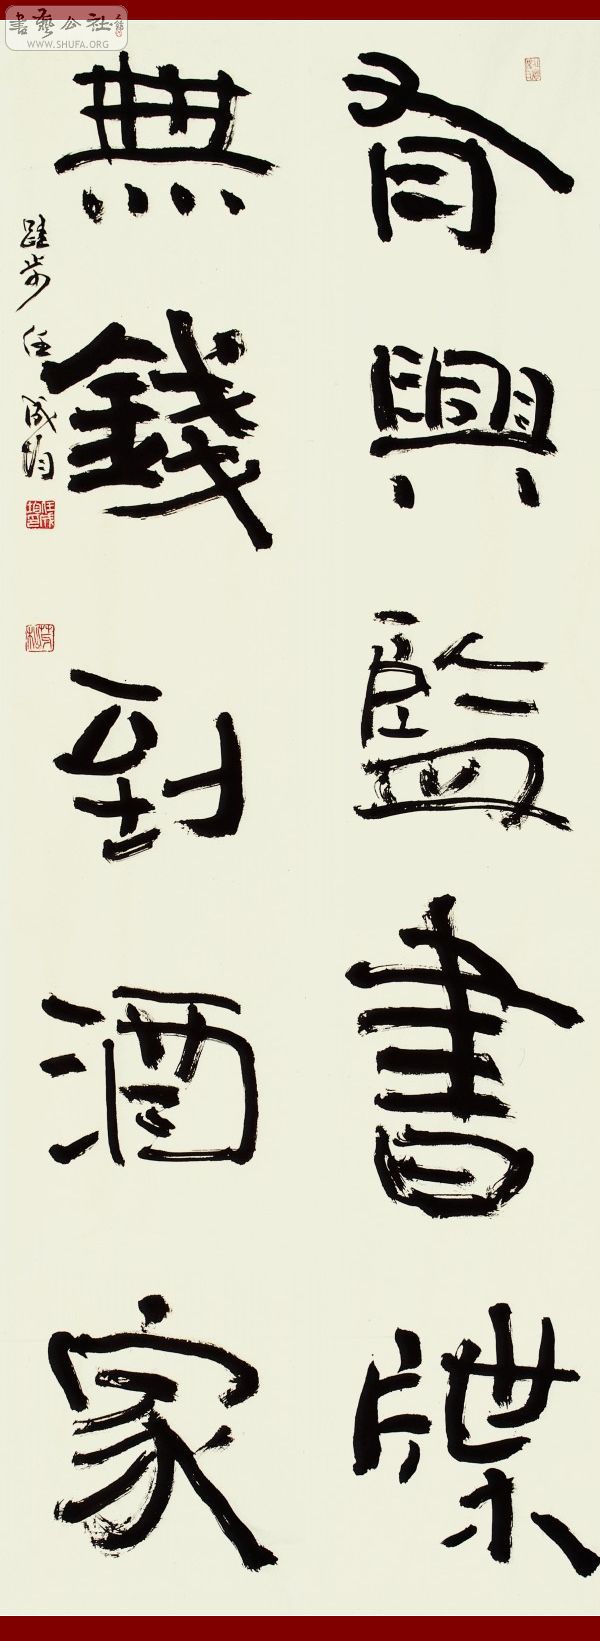 有興監書牒
無錢到酒家
跬步 任成均
書藝公社
WWW.SHUFA.ORG